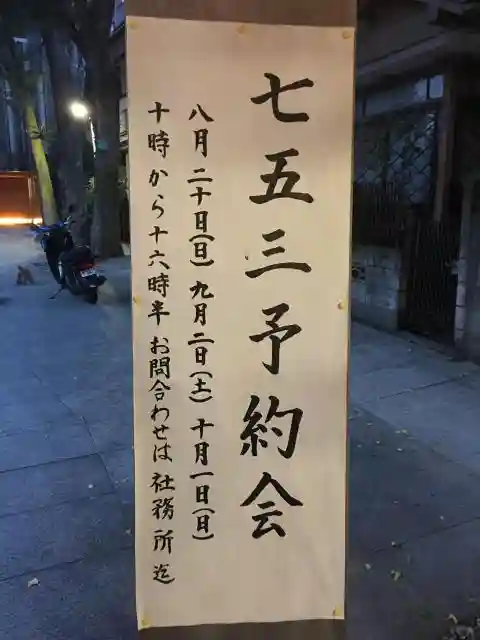 七五三予約会
八月二十日(日)九月二日(土)十月一日(日)
十時から十六時半 お問合わせは 社務所迄